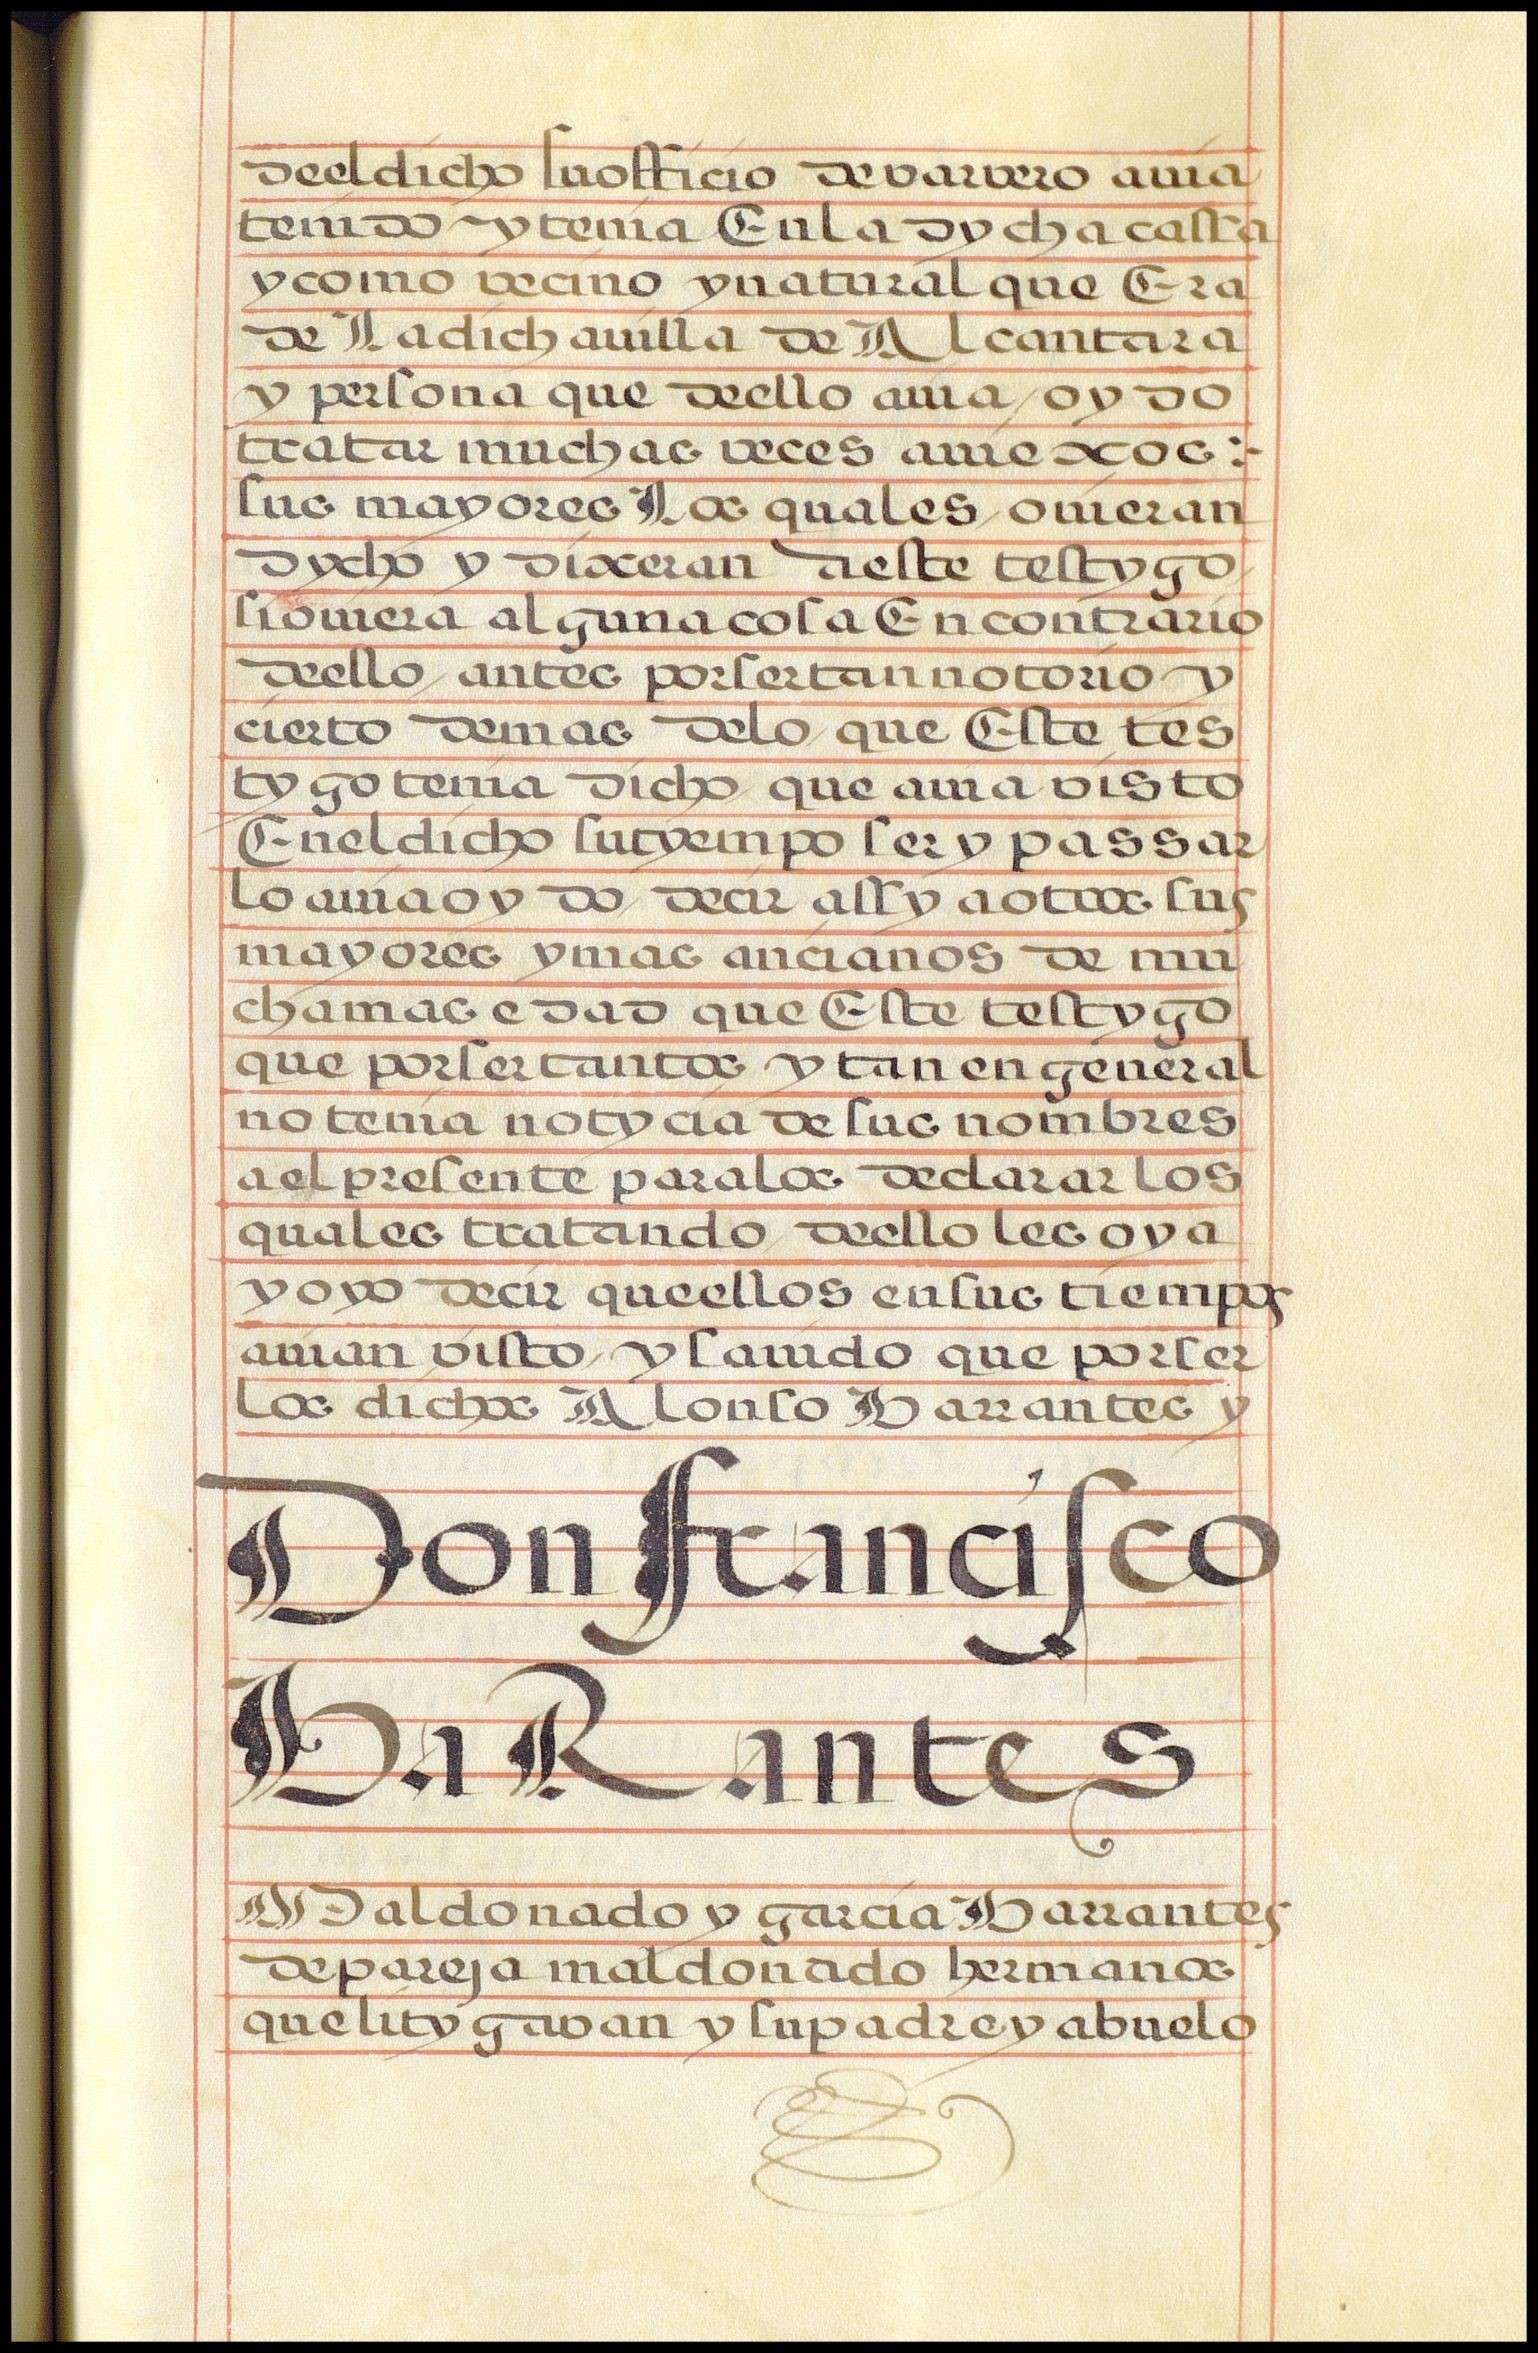 deeldicho suofficio devarvero auia
tenido y tenia En la dycha cassa
y como vecino y natural que Era
de La dicha uilla de Alcantara
y persona que deello auia oydo
tratar muchas veces a uiexos :
sus mayores Los quales ouieran
dycho y dixeran a este testygo
si ouiera alguna cosa En contrario
deello antes por ser tan notorio y
cierto demas delo que Este tes
tygo tenia dicho que auia visto
En el dicho su tyempo ser y passar
lo auia oydo decir assy a otros sus
mayores y mas ancianos de mu
cha mas edad que Este testygo
que por ser tantos y tan en general
no tenia notycia de sus nombres
a el presente para los declarar los
quales tratando deello les oya
y oyo decir que ellos en sus tiempos
auian visto y sauido que por ser
los dichos Alonso Barrantes y
Don Francisco
BaRantes
Maldonado y garcia Barrantes
de pareja maldonado hermanos
que litygavan y su padre y abuelo